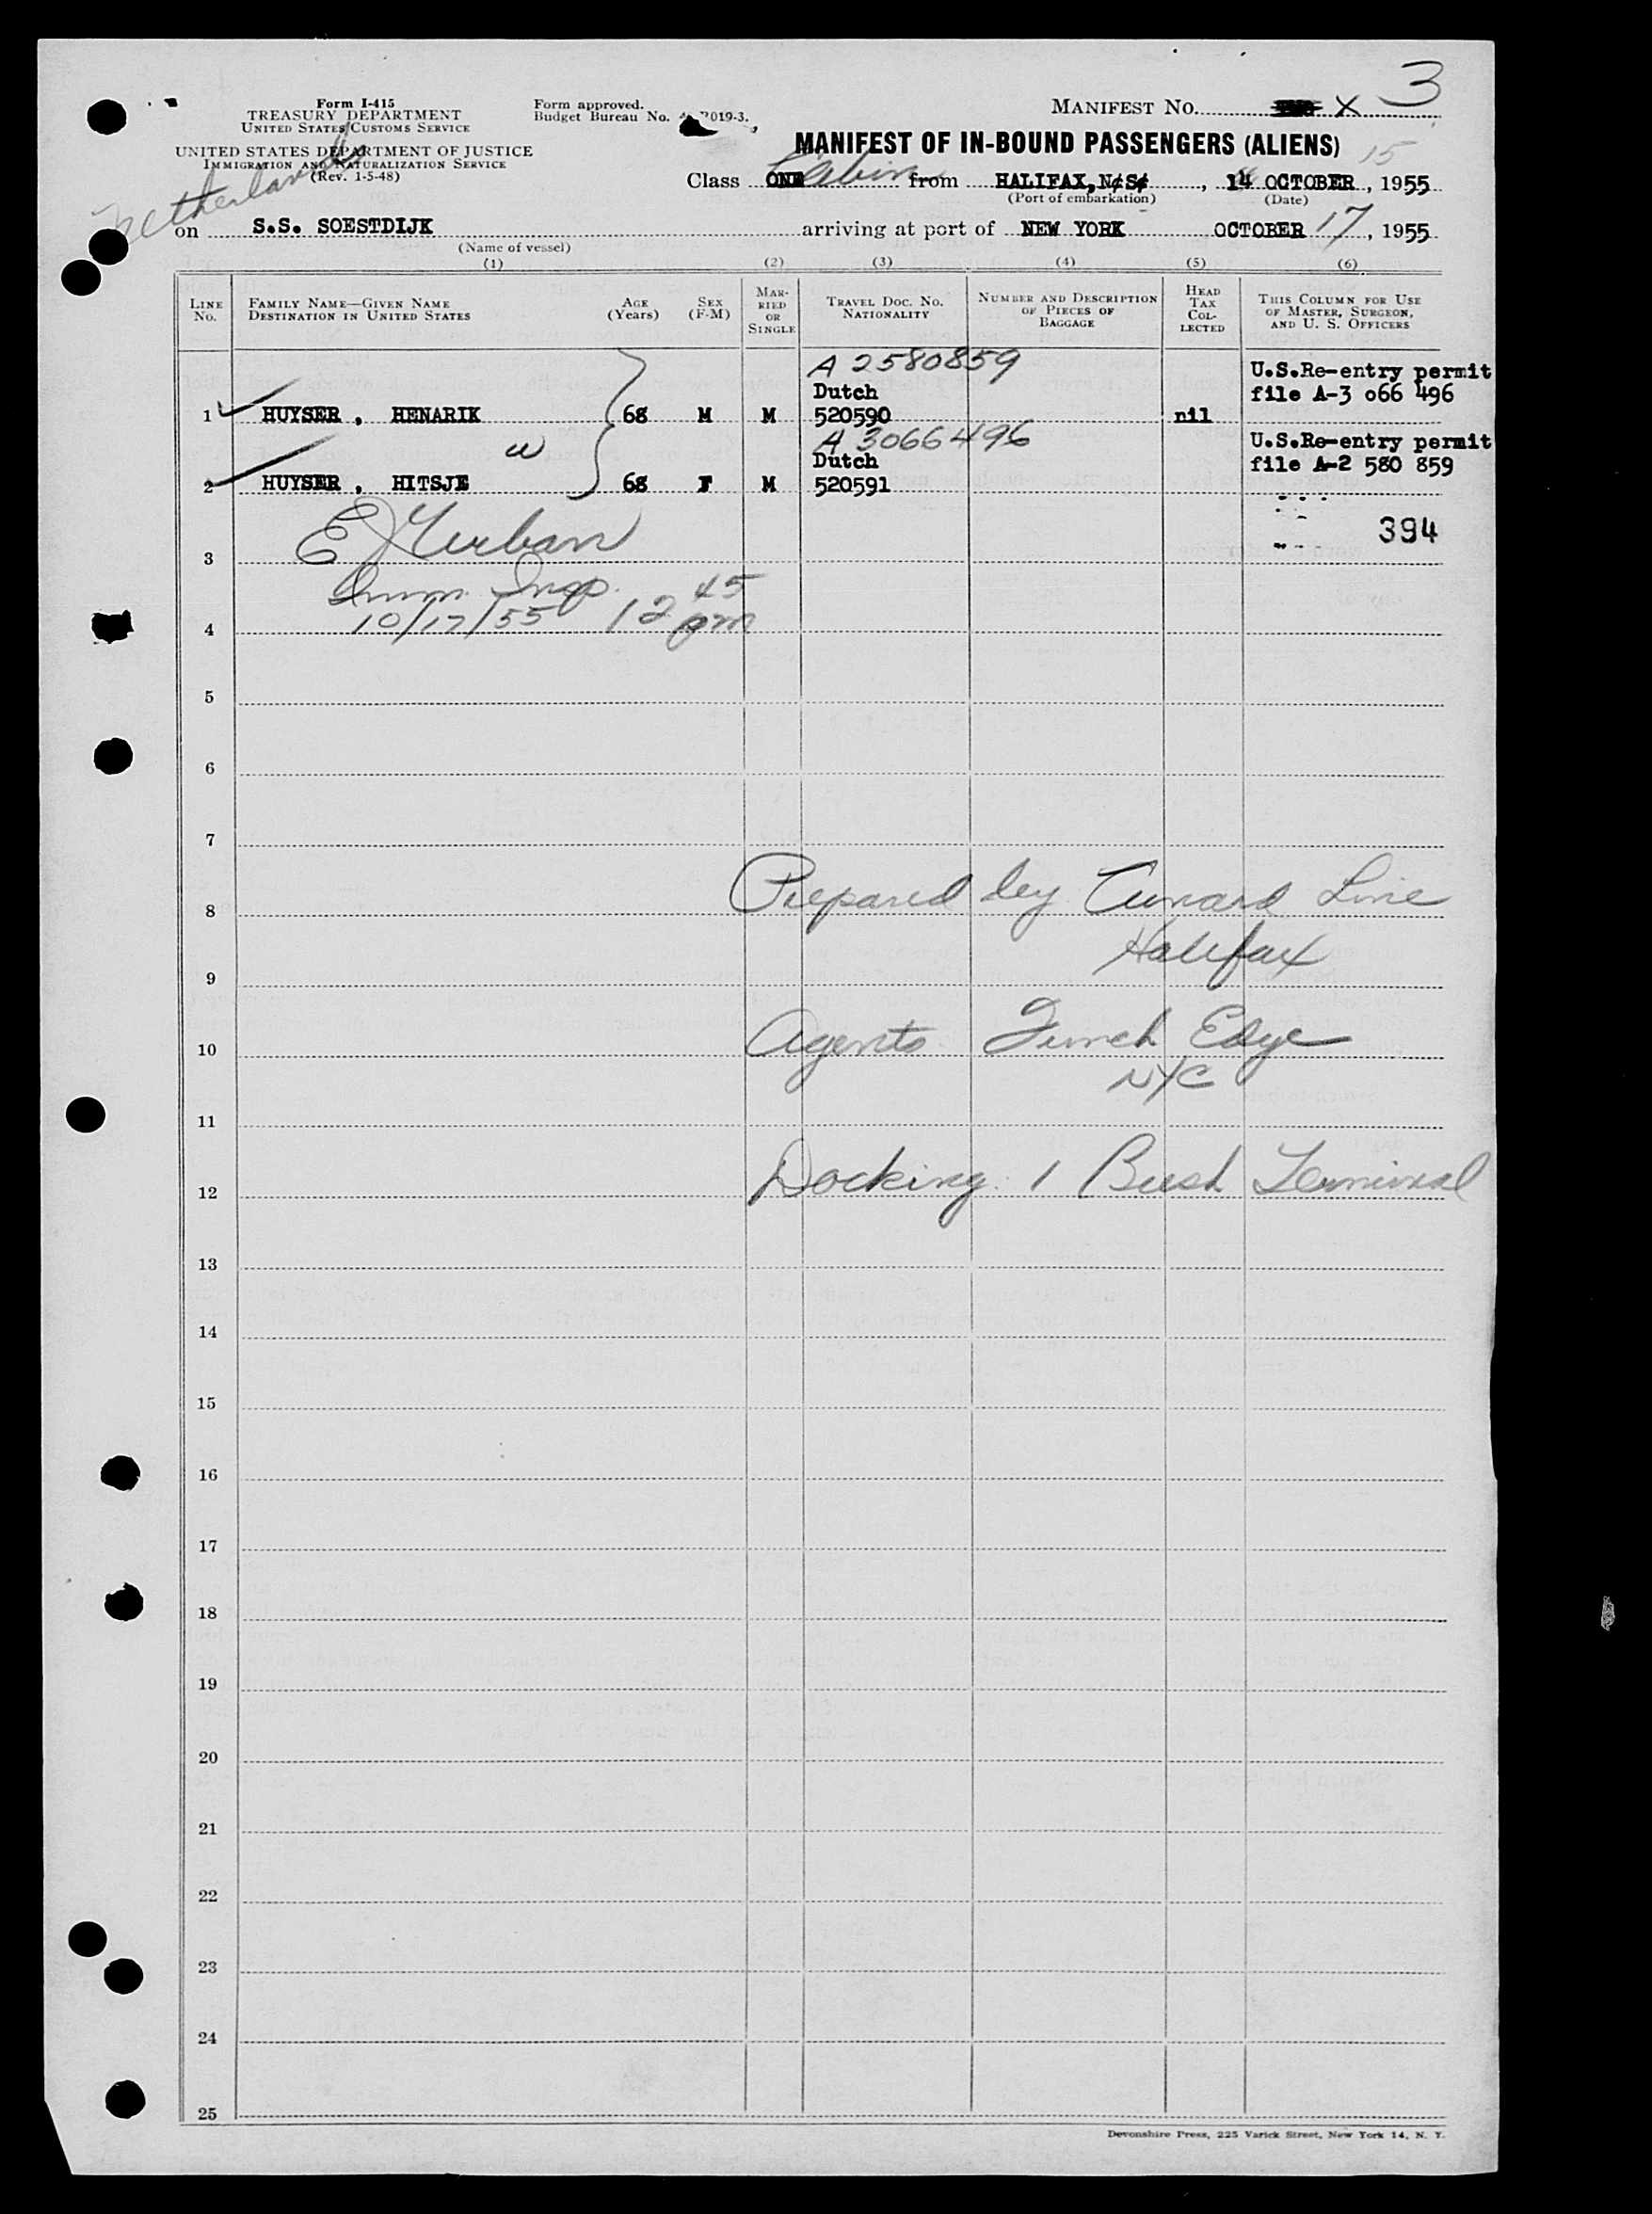 3
Form I-415
TREASURY DEPARTMENT
UNITED STATES CUSTOMS SERVICE
UNITED STATES DEPARTMENT OF JUSTICE
IMMIGRATION AND NATURALIZATION SERVICE
(Rev. 1-5-48)
Netherlands
Form approved.
Budget Bureau No. 019-3.
MANIFEST NO. X
MANIFEST OF IN-BOUND PASSENGERS (ALIENS)
15
Class ONE Cabin from HALIFAX, N¢S¢, 14 OCTOBER, 1955
(Port of embarkation) (Date)
on S.S. SOESTDIJK arriving at port of NEW YORK OCTOBER 17, 1955
(Name of vessel)
(1) (2) (3) (4) (5) (6)
LINE NO.
FAMILY NAME—GIVEN NAME
DESTINATION IN UNITED STATES
AGE (Years)
SEX (F-M)
MARRIED OR SINGLE
TRAVEL DOC. NO.
NATIONALITY
NUMBER AND DESCRIPTION
OF PIECES OF
BAGGAGE
HEAD TAX COLLECTED
THIS COLUMN FOR USE
OF MASTER, SURGEON,
AND U. S. OFFICERS
A 2580859
U.S.Re-entry permit
Dutch file A-3 o66 496
1 HUYSER , HENARIK 68 M M 520590 nil
A 3066496
U.S.Re-entry permit
w Dutch file A-2 580 859
2 HUYSER , HITSJE 68 F M 520591
394
3 E
Imm. Insp. 45
4 10/17/55 12 pm
5
6
7
8 Prepared by Cunard Line
Halifax
9
10 Agents Funch Edye
NYC
11
12 Docking 1 Bush Terminal
13
14
15
16
17
18
19
20
21
22
23
24
25
Devonshire Press, 225 Varick Street, New York 14, N. Y.